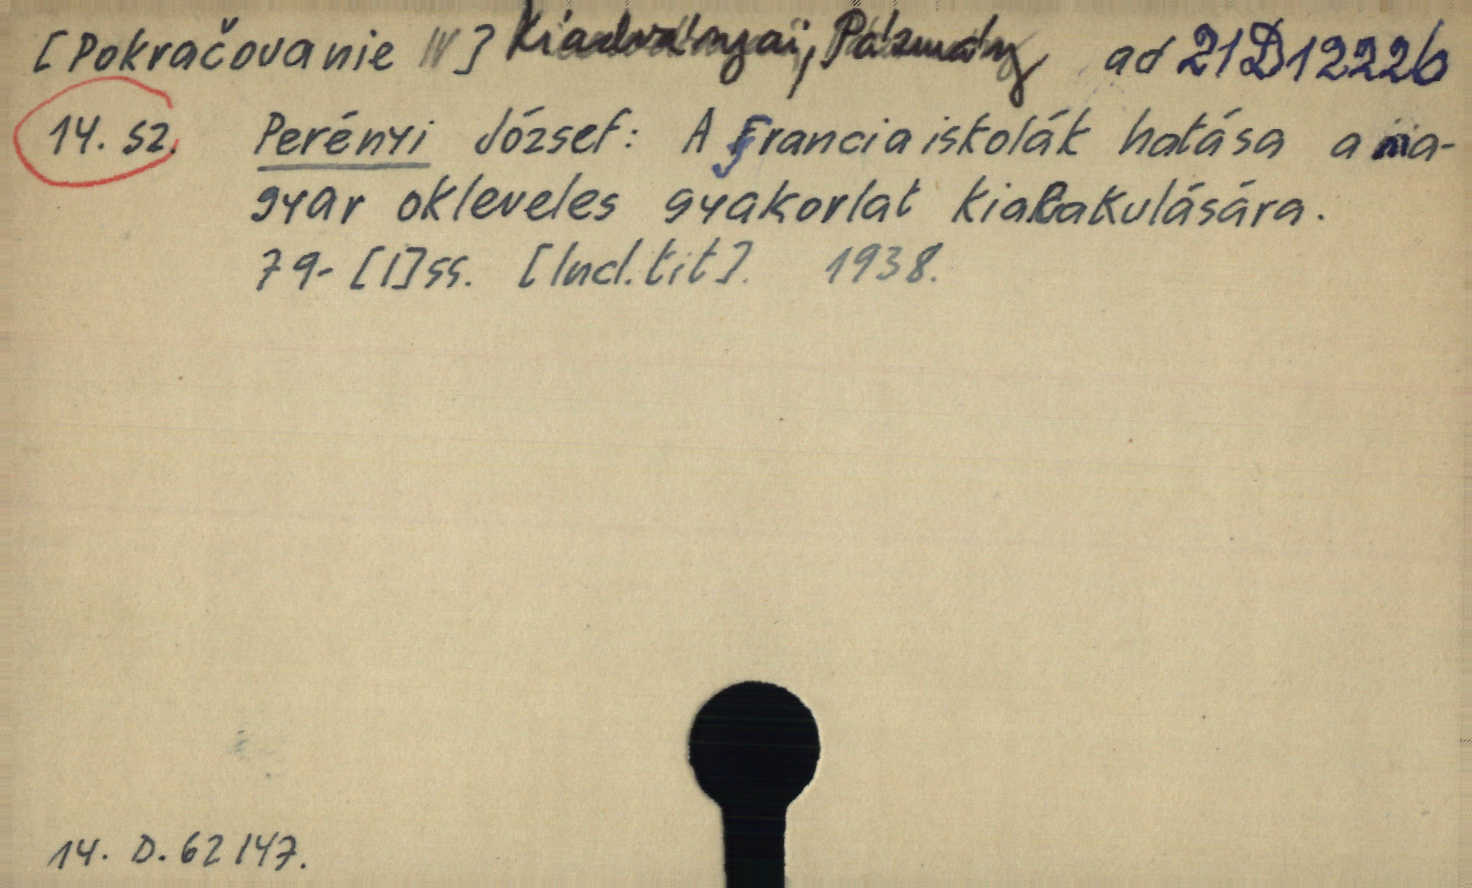 [Pokračovanie IV] Kiadványai, Pázmány ad 21D12226
14. sz. Perényi József: A francia iskolák hatása a ma-
gyar okleveles gyakorlat kialakulására.
79-[1]ss. [Incl.tit]. 1938.
14. D. 62147.